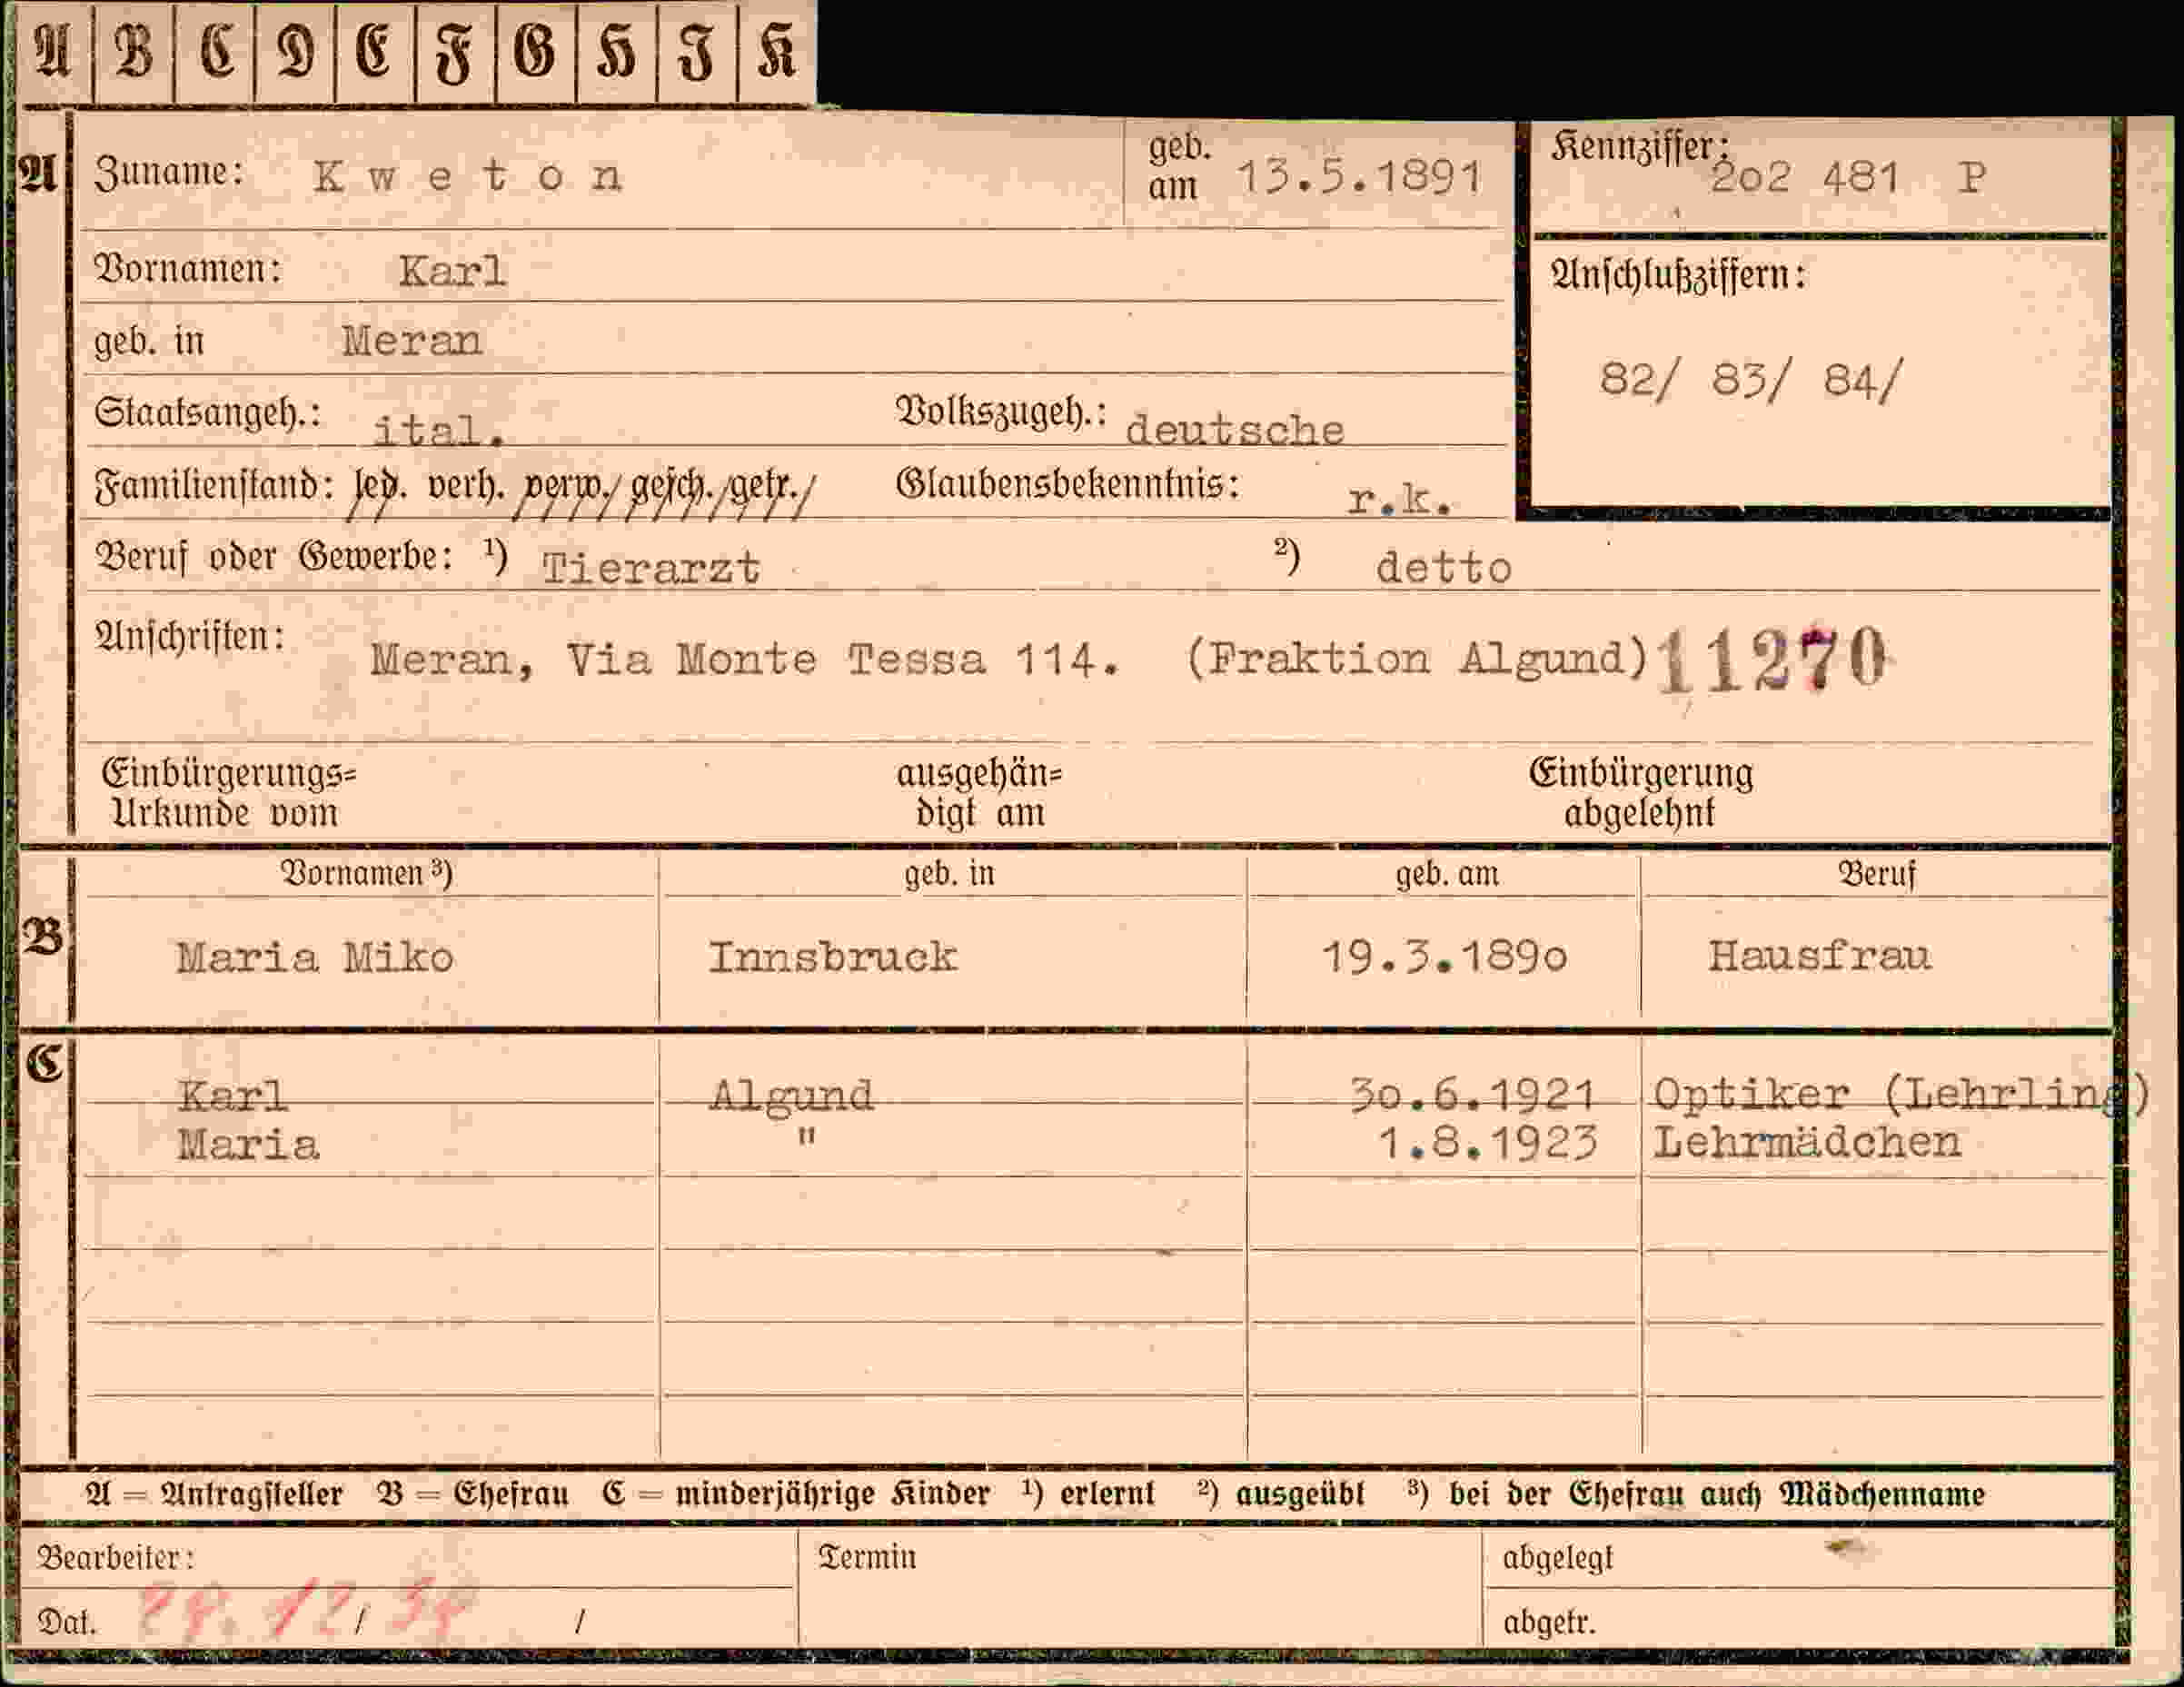 A B C D E F G H I K
A Zuname: Kweton geb. am 13.5.1891 Kennziffer: 2o2 481 P
Vornamen: Karl Anschlußziffern:
geb. in Meran 82/ 83/ 84/
Staatsangeh.: ital. Volkszugeh.: deutsche
Familienstand: led. verh. verw./ gesch./getr./ Glaubensbekenntnis: r.k.
Beruf oder Gewerbe: ¹) Tierarzt ²) detto
Anschriften: Meran, Via Monte Tessa 114. (Fraktion Algund) 11270
Einbürgerungs= ausgehän= Einbürgerung
Urkunde vom digt am abgelehnt
Vornamen ³) geb. in geb. am Beruf
B Maria Miko Innsbruck 19.3.189o Hausfrau
C Karl Algund 3o.6.1921 Optiker (Lehrling)
Maria " 1.8.1923 Lehrmädchen
A = Antragsteller B = Ehefrau C = minderjährige Kinder ¹) erlernt ²) ausgeübt ³) bei der Ehefrau auch Mädchenname
Bearbeiter: Termin abgelegt
Dat. / / abgetr.